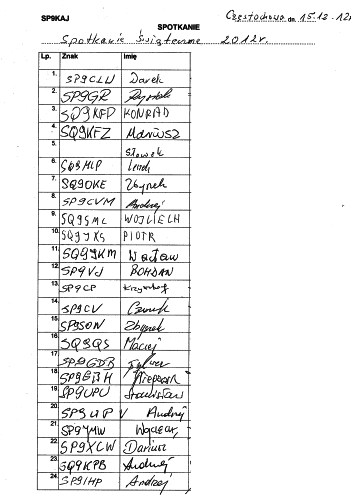 SP9KAJ Częstochowa dn. 15.12.12r
SPOTKANIE
Spotkanie Świąteczne 2012r.
Lp. Znak Imię
1. SP9CLU Darek
2. SP9GR
3. SQ9KFD KONRAD
4. SQ9KFZ Mariusz
5. Sławek
6. SQ9MLP Leszek
7. SQ9OKE Zbyszek
8. SP9CVM Andrzej
9. SQ9SMC WOJCIECH
10. SQ9JKS PIOTR
11. SQ9JKM Wacław
12. SP9VJ BOHDAN
13. SP9CP Krzysztof
14. SP9CV
15. SP9SON Zbyszek
16. SQ9SQS Maciej
17. SP9GDB
18. SP9GBH
19. SP9UPU Stanisław
20. SP9UPV Andrzej
21. SP9YMW Wojciech
22. SP9XCW Dariusz
23. SQ9KPB Andrzej
24. SP9IHP Andrzej